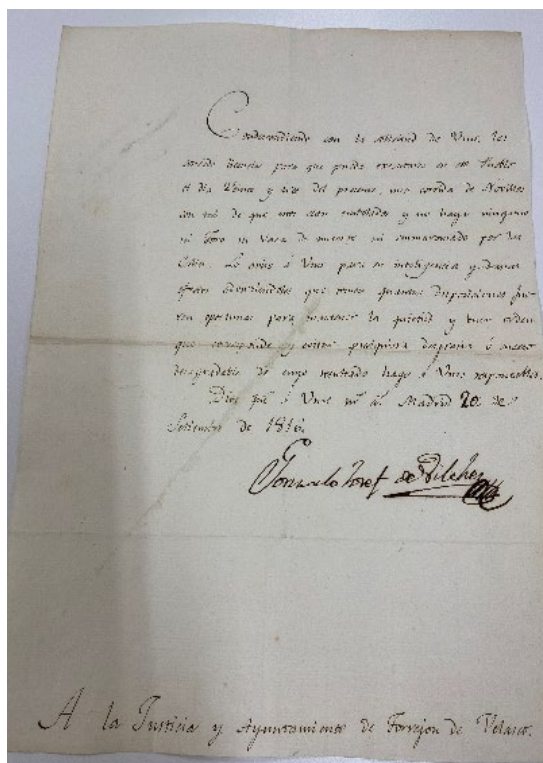 Condescendiendo con la solicitud de Vms. les
concedo licencia para que pueda executarse en ese Pueblo
el dia Veinte y tres del presente, una corrida de Novillos
con tal de que estos sean embolados y no haya ninguno
ni Toro ni Vaca de muerte ni enmaromado por las
Calles. Lo aviso á Vms para su inteligencia y demas
efectos
que corresponde y evitar qualquiera desgracia ó suceso
desagradable de cuyo resultado hago á Vms responsables.
Dios gue á Vms ms as. Madrid 20 de
Setiembre de 1816.
Gonzalo Josef de Vilches
A la Justicia y Ayuntamiento de Torrejon de Velasco.